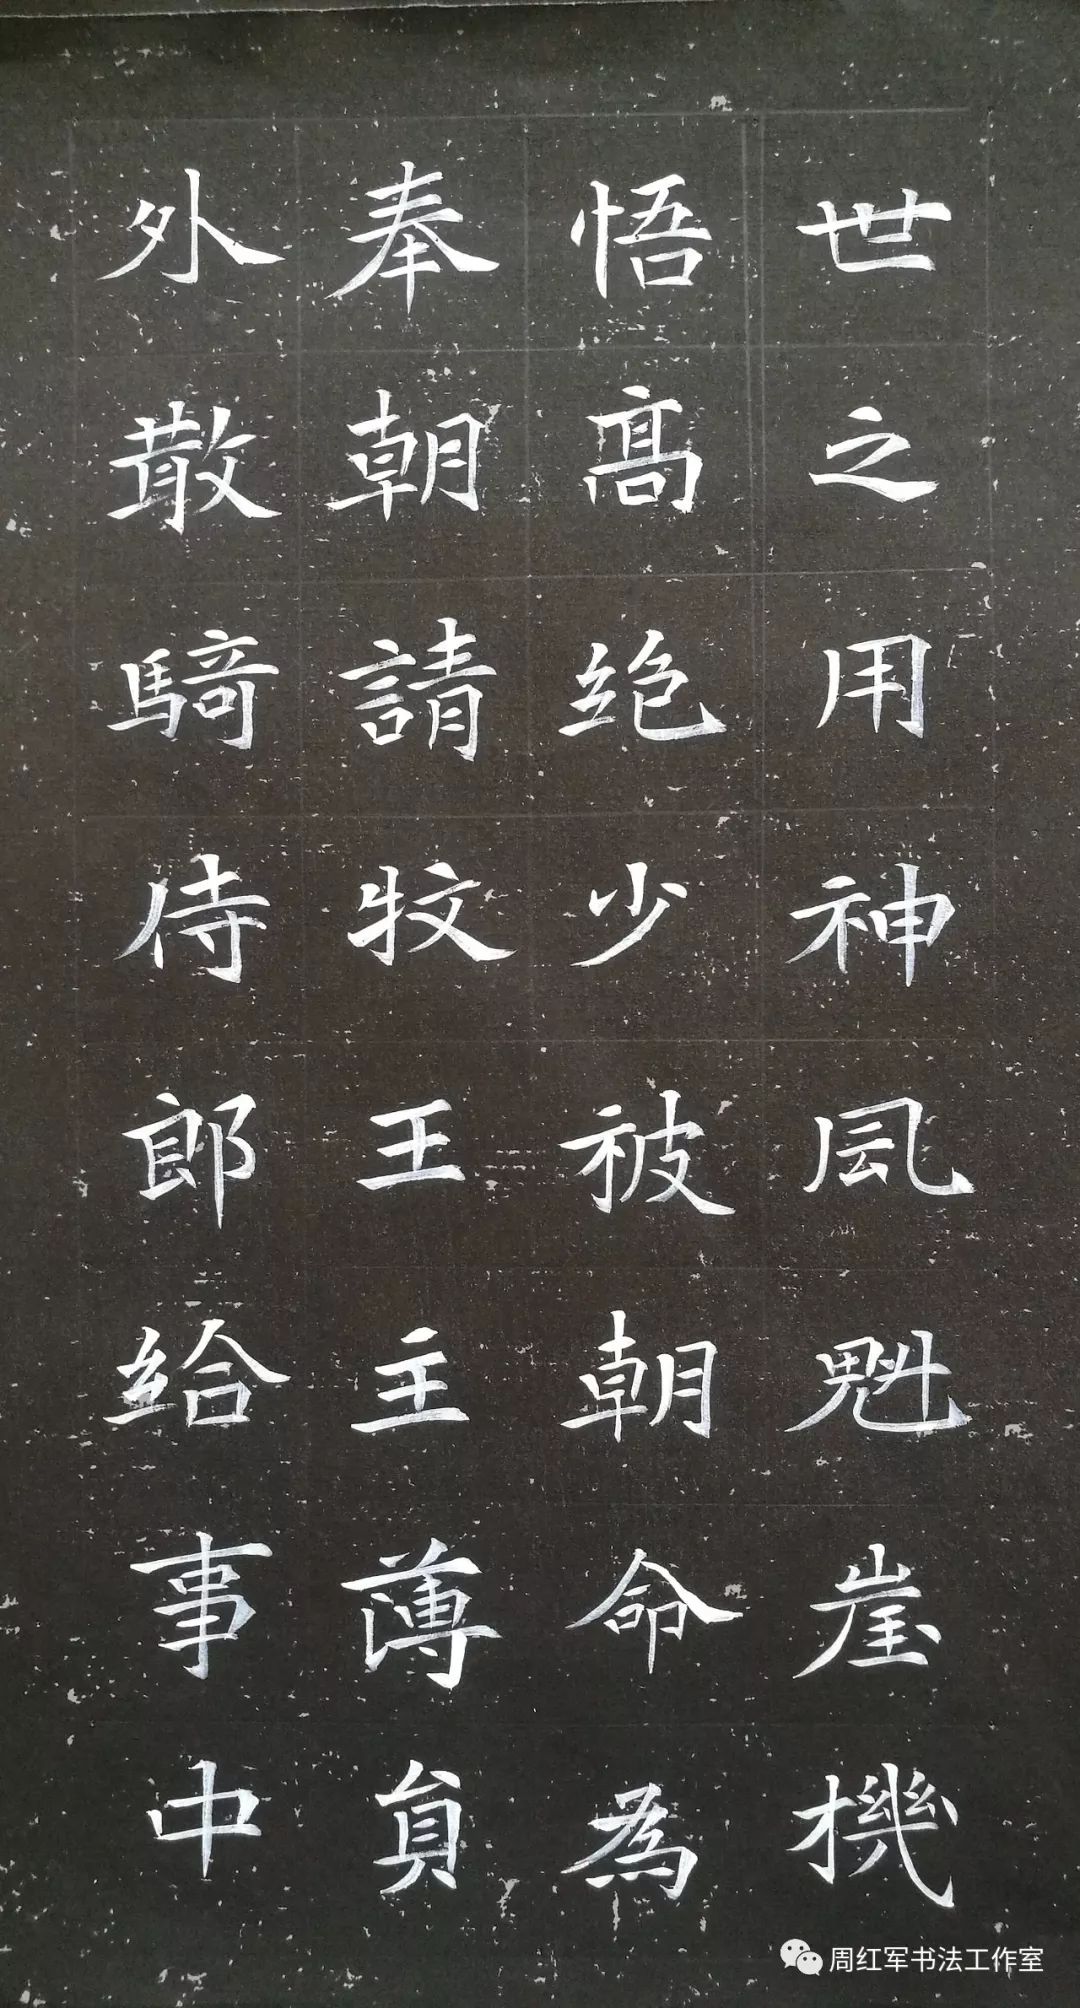 世之用神風魁崖機
悟高絶少被朝命為
奉朝請牧王主薄員
外散騎侍郎給事中
周红军书法工作室